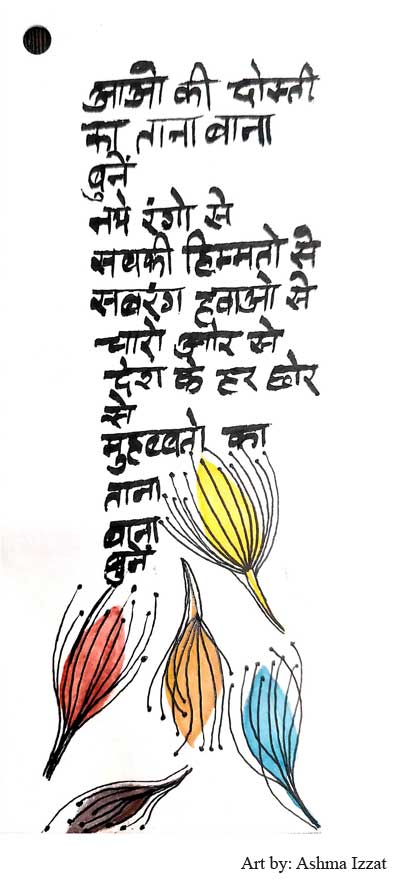 आओ की दोस्ती
का ताना बाना
बुनें
नये रंगो से
सबकी हिम्मतो से
सबरंग हवाओ से
चारो और से
देश के हर छोर
से
मुहब्बतो का
ताना
बाना
बुनें
Art by: Ashma Izzat